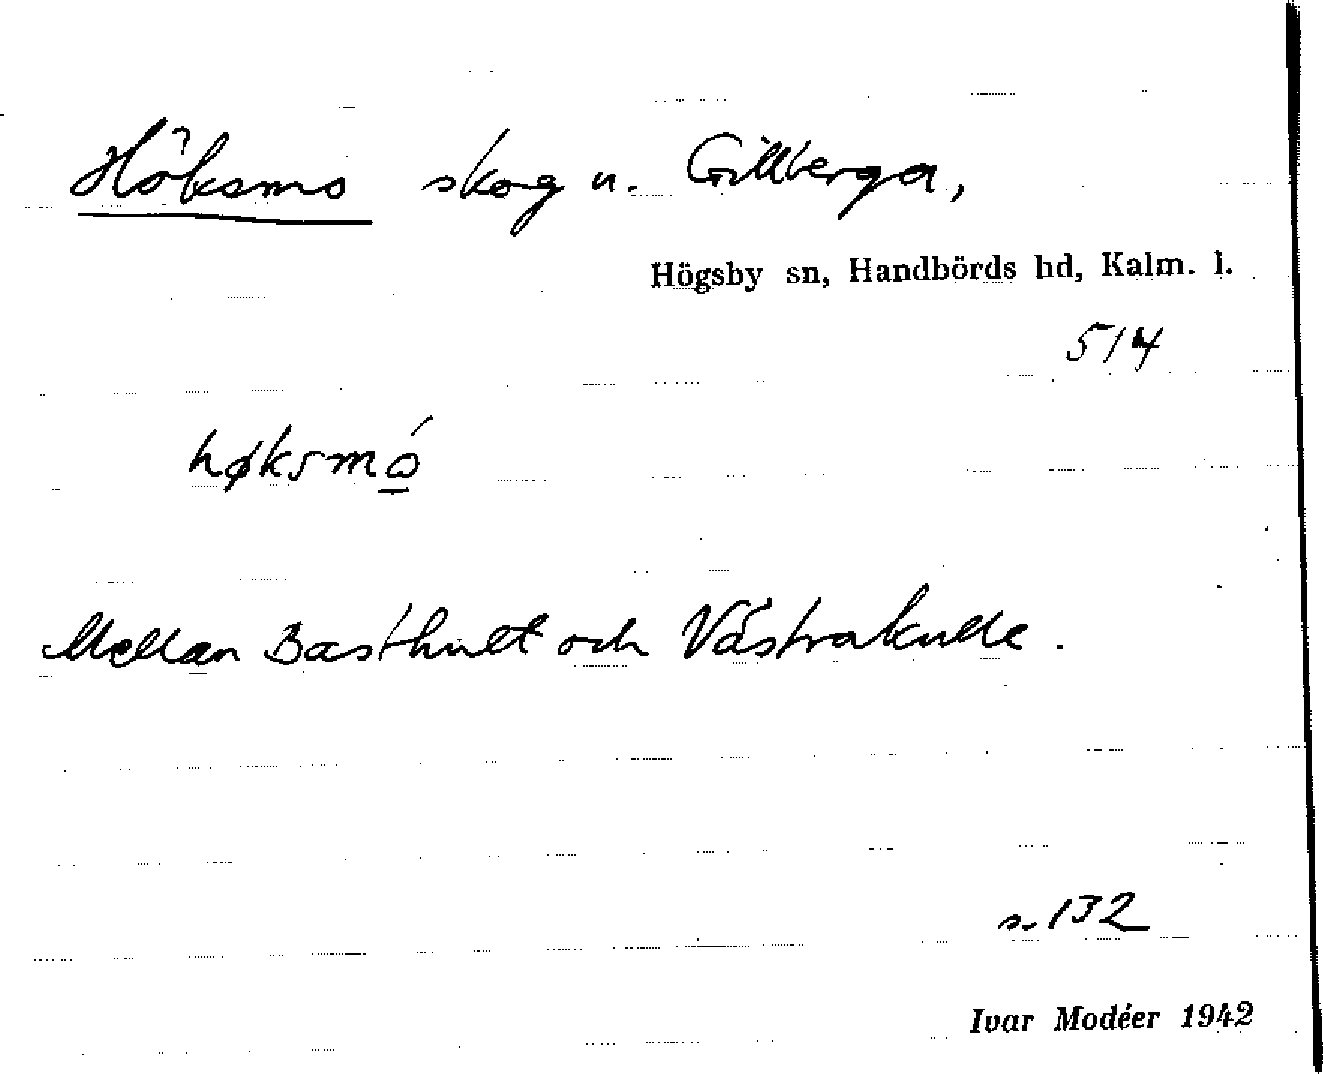 Höksmo skog u. Gillberga,
Högsby sn, Handbörds hd, Kalm. l.
514
høksmó̲
Mellan Basthult och Västrakulle.
s. 132
Ivar Modéer 1942